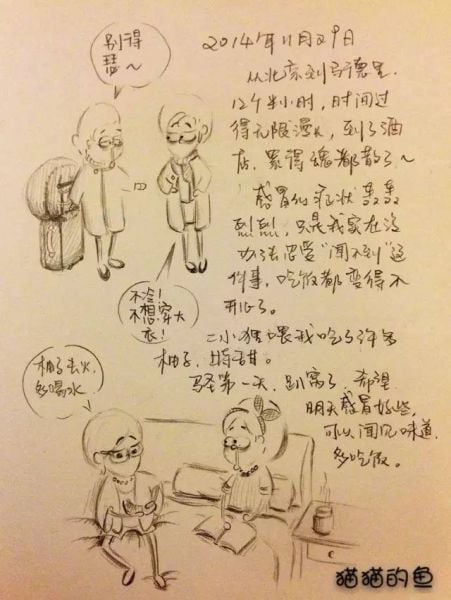 别得
瑟～
2014年11月29日
从北京到马德里，
12个半小时，时间过
得无限漫长，到了酒
店，累得魂都散了～
感冒的症状轰轰
烈烈，只是我实在没
办法忍受“闻不到”这
件事，吃饭都变得不
开心了。
不冷！
不想穿大
衣！
二小姐喂我吃了许多
柚子，特甜。
马圣第一天，趴窝了，希望
明天感冒好些，
可以闻见味道，
多吃饭。
柚子去火，
多喝水
猫猫的鱼